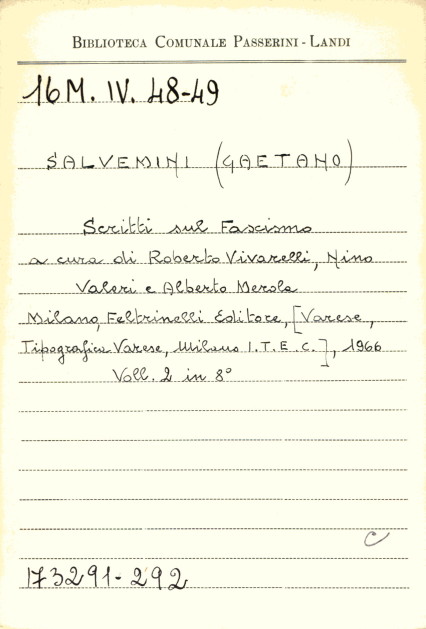 BIBLIOTECA COMUNALE PASSERINI - LANDI
16 M. IV. 48-49
SALVEMINI (GAETANO)
Scritti sul Fascismo
a cura di Roberto Vivarelli, Nino
Valeri e Alberto Merola
Milano, Feltrinelli Editore, [Varese,
Tipografica Varese, Milano I.T.E.C.], 1966
Voll. 2 in 8°
C
173291-292